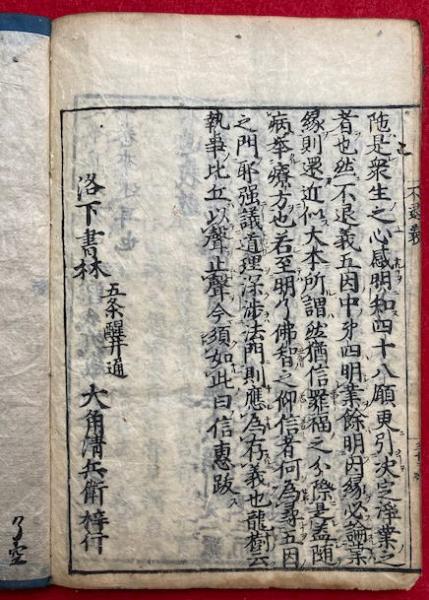 不退義
陁是衆生之心感明和四十八願更引决定淨業之
者也然不退義五因中第四明業餘明因緣必論業
緣則還近似大本所謂然猶信罪福之分際是蓋随
病華療方也若至明了佛智之仰信者何為尋五因
之門耶强議道理深涉法門則應為存義也龍樹云
執事比丘以聲止聲今須如此曰信惠跋
洛下書林 五条醒井通 大角清兵衛梓行
了空